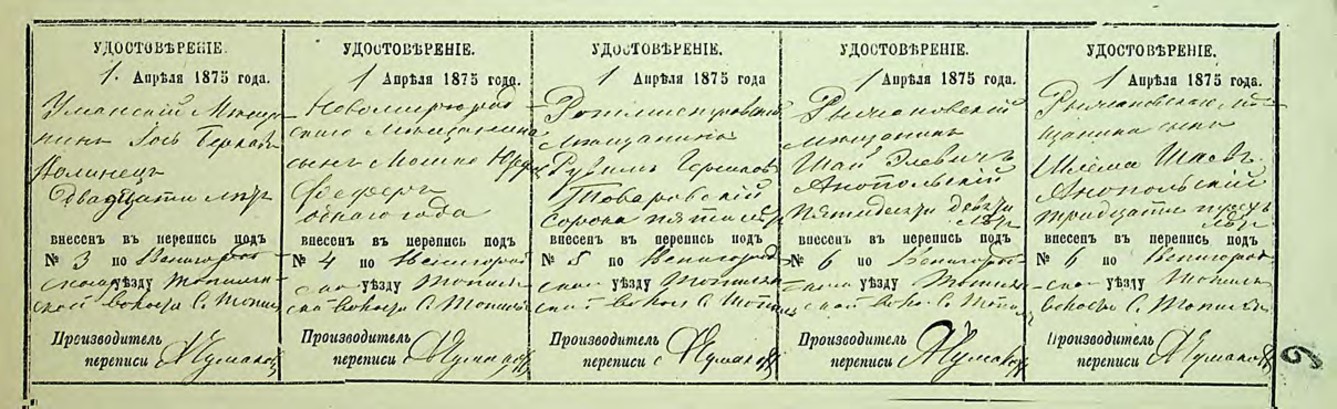 УДОСТОВѢРЕНІЕ.
1. Апрѣля 1875 года.
Уманскій Мѣщанинъ
Іось Берков
Полинецъ
двадцати лѣт
внесенъ въ перепись подъ
№ 3 по Звенигород
скому уѣзду Топильн
ской волости С. Топил
Производитель
переписи
УДОСТОВѢРЕНІЕ.
1 Апрѣля 1875 года.
Новомиргород
скаго Мѣщанина
сынъ Мошко
Феферъ
однаго года
внесенъ въ перепись подъ
№ 4 по Звенигород
ско уѣзду Топиль
ской волости С. Топиль
Производитель
переписи
УДОСТОВѢРЕНІЕ.
1 Апрѣля 1875 года
Ротмистровскій
мѣщанинъ
Рувинъ Гершков
Товаровскій
сорока пяти лѣт
внесенъ въ перепись подъ
№ 5 по Звенигород
ско уѣзду Топильн
ской волос С Топил
Производитель
переписи
УДОСТОВѢРЕНІЕ.
1 Апрѣля 1875 года.
Рыжановскій
мѣщанинъ
Шая Элевичъ
Анопольскій
пятидесяти девяти
лѣт
внесенъ въ перепись подъ
№ 6 по Звенигород
скому уѣзду Топильн
ской воло. С. Топил
Производитель
переписи
УДОСТОВѢРЕНІЕ.
1 Апрѣля 1875 года.
Рыжановскаго мѣ
щанина сынъ
Шлёма Шаев.
Анопольскій
тридцати трехъ
лѣт
внесенъ въ перепись подъ
№ 6 по Звенигород
ско уѣзду Топильн
волости С. Топильн
Производитель
переписи
6